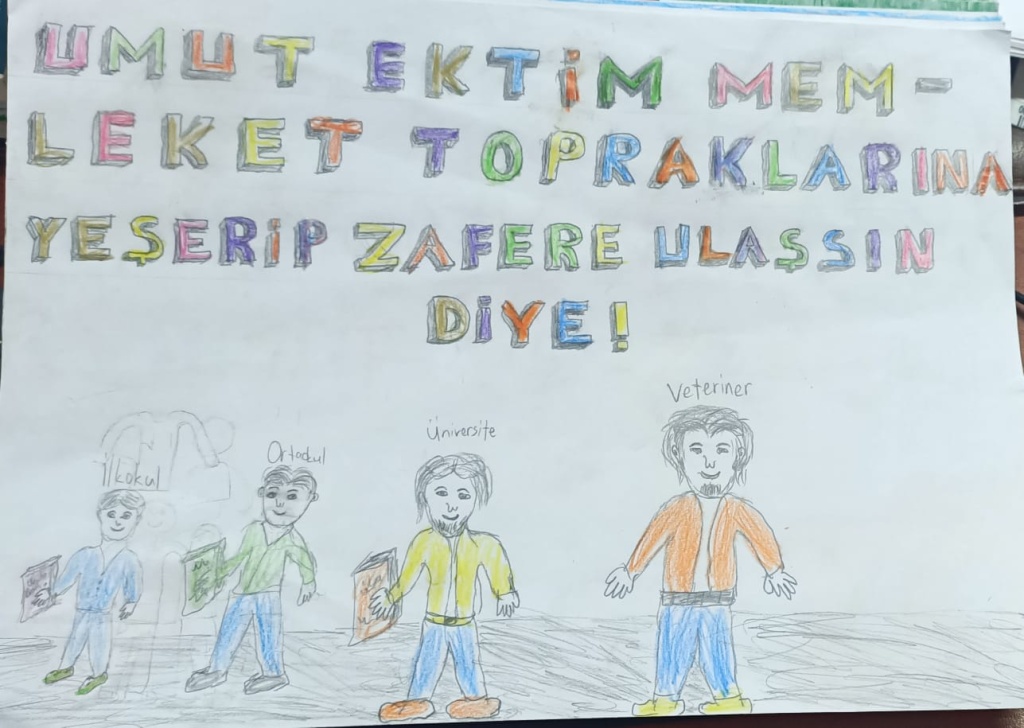 UMUT EKTİM MEM-
LEKET TOPRAKLARINA
YEŞERİP ZAFERE ULAŞSIN
DİYE!
Veteriner
Üniversite
Ortaokul
İlkokul